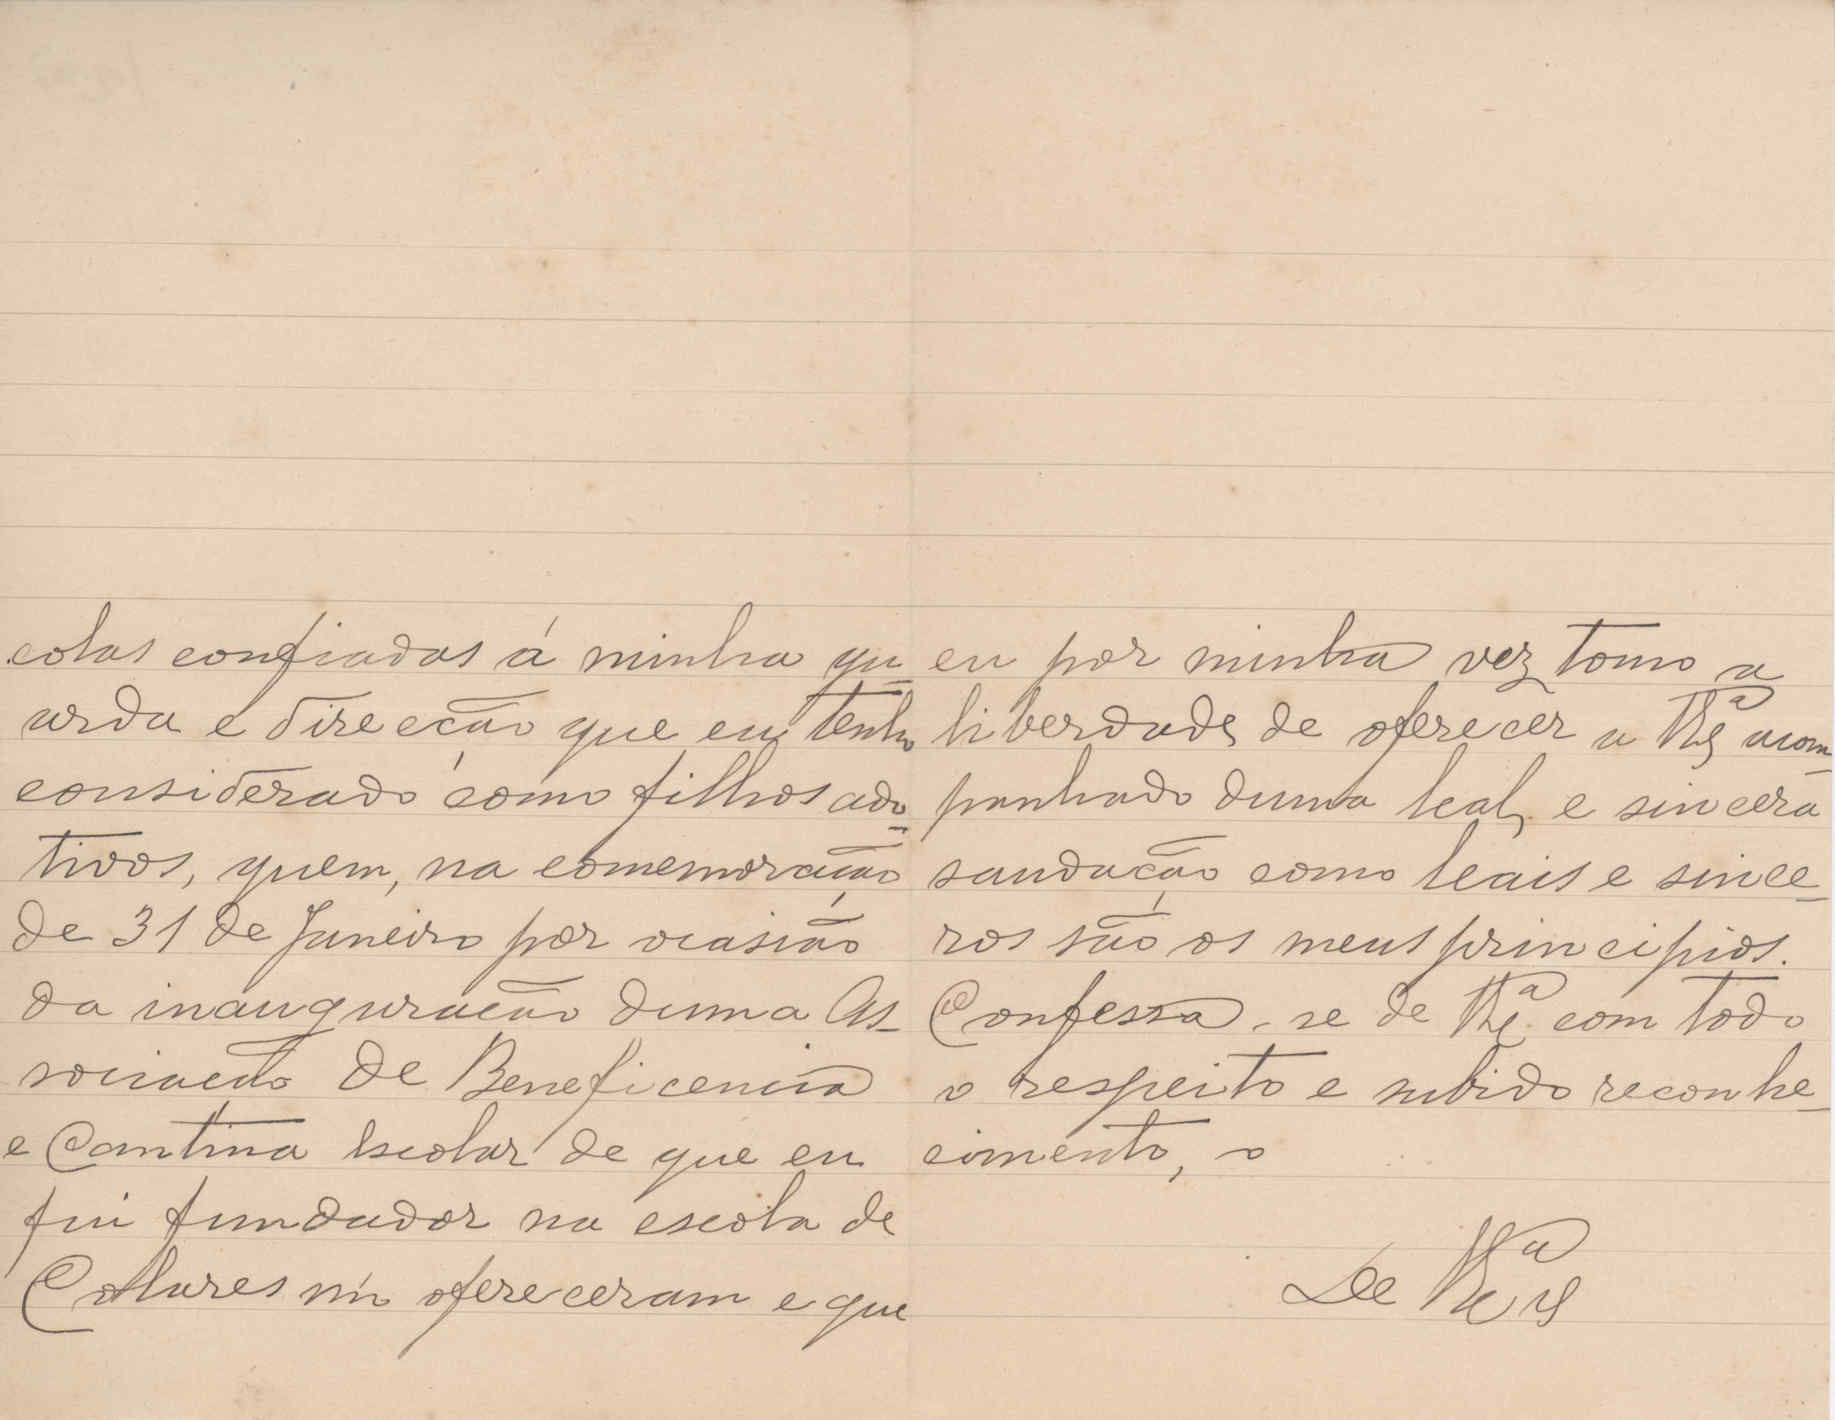 colas confiadas á minha gu-
arda e direcção que eu tenho
considerado como filhos ado-
tivos, quem, na comemoração
de 31 de Janeiro por ocasião
da inauguração duma As-
sociação de Beneficencia
e Cantina Escolar de que eu
fui fundador na escola de
Collares m'o ofereceram e que
eu por minha vez tomo a
liberdade de oferecer a V. Exª acom-
panhado duma leal, e sincera
saudação como leais e since-
ros são os meus principios.
Confessa-se de V. Exª com todo
o respeito e subido reconhe-
cimento, o
De V. Exª